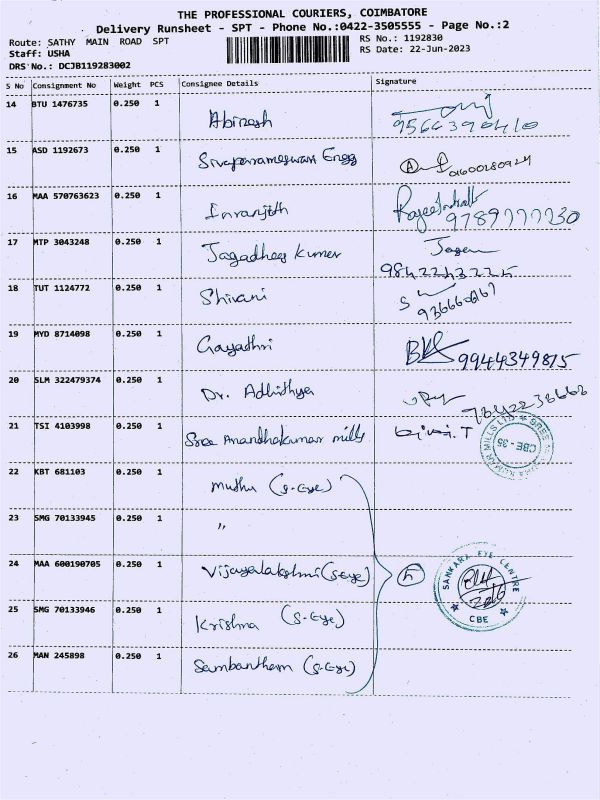 THE PROFESSIONAL COURIERS, COIMBATORE
Delivery Runsheet - SPT - Phone No.:0422-3505555 - Page No.:2
Route: SATHY MAIN ROAD SPT RS No.: 1192830
Staff: USHA RS Date: 22-Jun-2023
DRS No.: DCJB119283002
S No Consignment No Weight PCS Consignee Details Signature
14 BTU 1476735 0.250 1 Abinash
15 ASD 1192673 0.250 1 Sivaparameswari Engg
16 MAA 570763623 0.250 1 Inranjith
9789777730
17 MTP 3043248 0.250 1 Jagadhees Kumar
9842243225
18 TUT 1124772 0.250 1 Shivani
19 MYD 8714098 0.250 1 Gayathri 9944349815
20 SLM 322479374 0.250 1 Dr. Adhithya
21 TSI 4103998 0.250 1 Sree Anandhakumar mills
CBE - 35
22 KBT 681103 0.250 1 Muthu (S-Eye)
23 SMG 70133945 0.250 1 "
24 MAA 600190705 0.250 1 Vijayalakshmi (S-Eye) 5 SANKARA EYE CENTRE
CBE
25 SMG 70133946 0.250 1 Krishna (S-Eye)
26 MAN 245898 0.250 1 Sambantham (S-Eye)